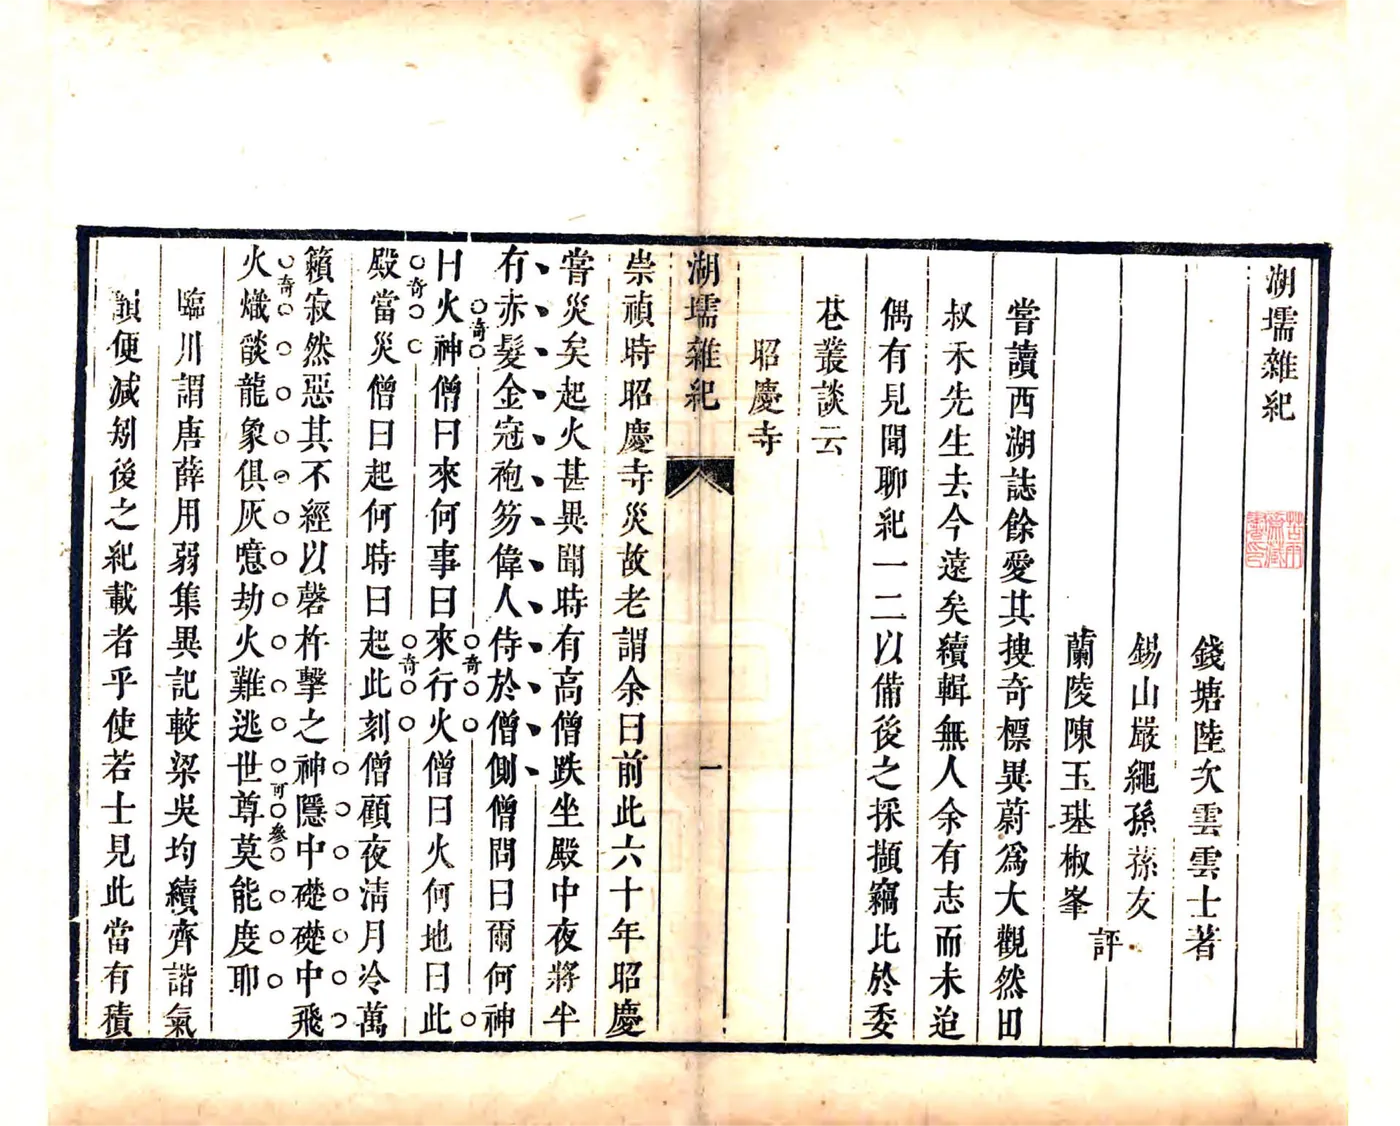 湖壖雜紀
錢塘陸次雲雲士著
錫山嚴繩孫蓀友
蘭陵陳玉璂椒峯
評
嘗讀西湖誌餘愛其搜奇標異蔚爲大觀然田
叔禾先生去今遠矣續輯無人余有志而未迨
偶有見聞聊紀一二以備後之採擷竊比於委
巷叢談云
昭慶寺
湖壖雜紀
一
崇禎時昭慶寺災故老謂余曰前此六十年昭慶
嘗災矣起火甚異聞時有高僧趺坐殿中夜將半
有赤髮金冠袍笏偉人侍於僧側僧問曰爾何神
奇
曰火神僧曰來何事曰來行火僧曰火何地曰此
奇
奇
殿當災僧曰起何時曰起此刻僧顧夜淸月冷萬
奇
籟寂然惡其不經以磬杵擊之神隱中礎礎中飛
火熾燄龍象俱灰噫劫火難逃世尊莫能度耶
奇
可
參
臨川謂唐薛用弱集異記較梁吳均續齊諧氣
韻便減矧後之紀載者乎使若士見此當有積